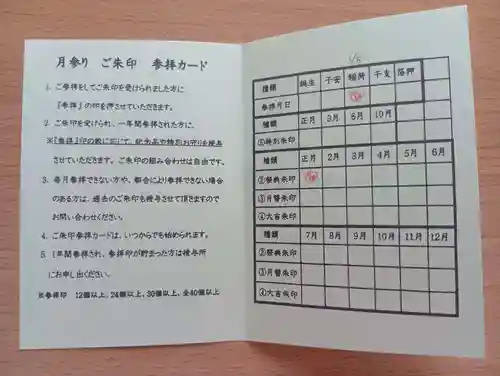 月参り ご朱印 参拝カード
1. ご参拝をしてご朱印を受けられました方に
『参拝』の印を押させていただきます。
2. ご朱印を受けられ、一年間参拝された方に、
※『参拝』印の数に応じて、記念品や特別お守りを授与
させていただきます。ご朱印の組み合わせは自由です。
3. 毎月参拝できない方や、都合により参拝できない場合
のある方は、過去のご朱印も授与させて頂きますので
お問い合わせください。
4. ご朱印参拝カードは、いつからでも始められます。
5. 1年間参拝され、参拝印が貯まった方は授与所
にお申し出ください。
※参拝印 12個以上、24個以上、30個以上、全40個以上
1/5
種類 誕生 子安 稲荷 干支 箔押
参拝月日
種類 正月 3月 6月 10月
①特別朱印
種類 正月 2月 3月 4月 5月 6月
②祭典朱印
③月替朱印
④大吉朱印
種類 7月 8月 9月 10月 11月 12月
②祭典朱印
③月替朱印
④大吉朱印